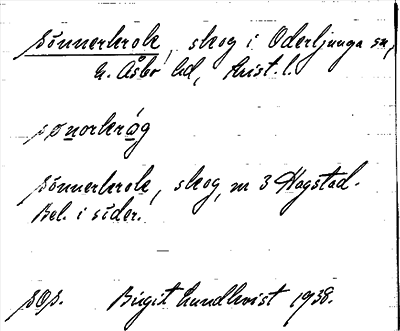 Sönnerkrok, skog i Oderljunga sn,
N. Åsbo hd, Krist. l.
sønorkråg
Sönnerkrok, skog, nr 3 Hagstad.
Bel. i söder.
sOs. Birgit Lundkvist 1938.